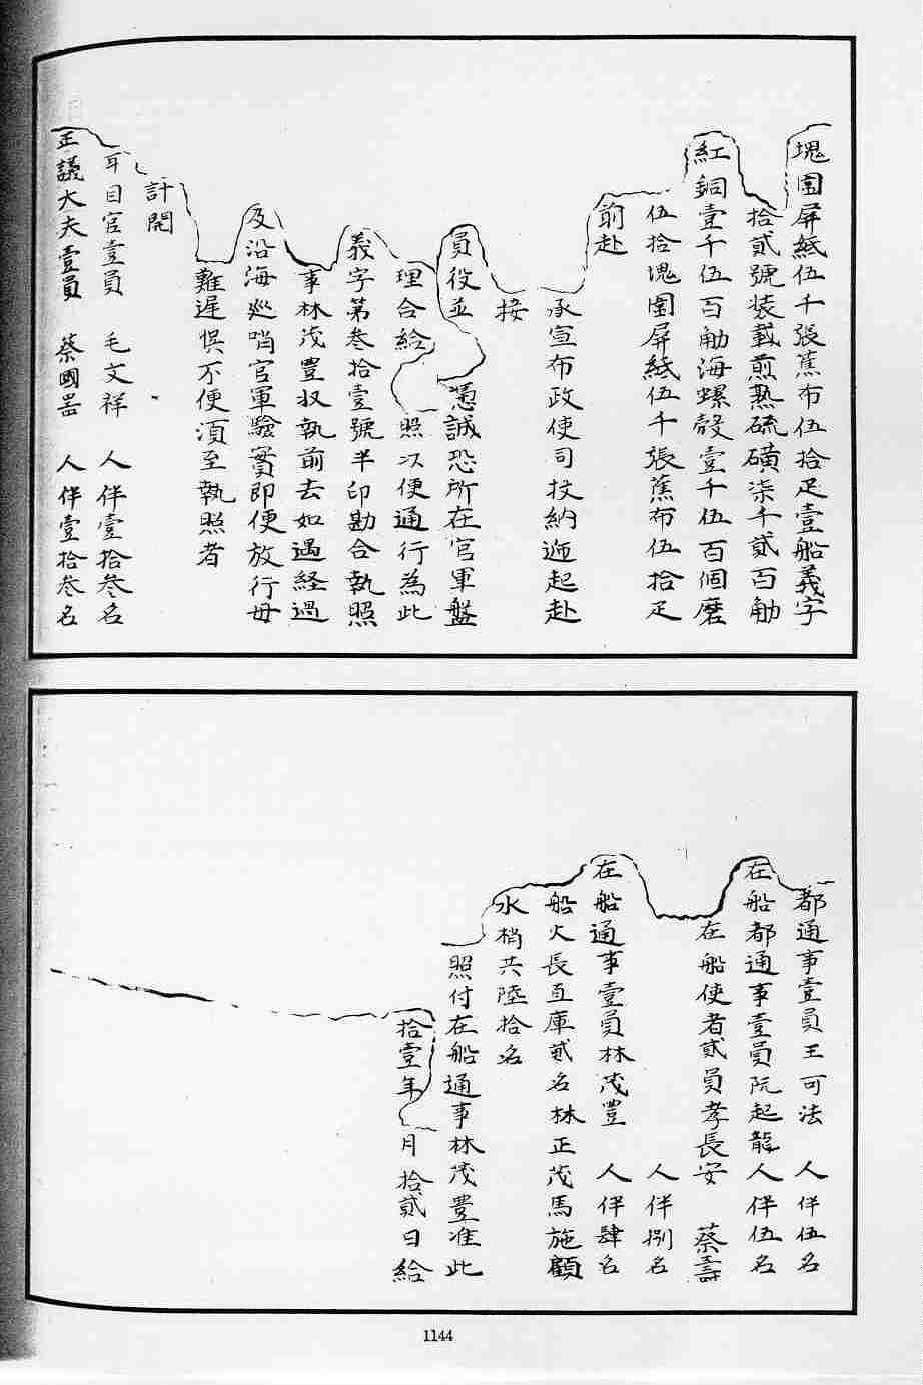 塊圍屏紙伍千張蕉布伍拾疋壹船義字
拾貳號装載煎熟硫磺柒千貳百觔
紅銅壹千伍百觔海螺殼壹千伍百個磨
伍拾塊圍屏紙伍千張蕉布伍拾疋
前赴
承宣布政使司投納迤起赴
接
員役並 憑誠恐所在官軍盤
理合給 照以便通行為此
義字第叁拾壹號半印勘合執照
事林茂豐収執前去如遇経過
及沿海廵哨官軍驗實即便放行毋
難遲悞不便湏至執照者
計開
耳目官壹員 毛文祥 人伴壹拾叁名
正議大夫壹員 蔡國器 人伴壹拾叁名
都通事壹員王可法 人伴伍名
在船都通事壹員阮起龍人伴伍名
在船使者貳員孝長安 蔡壽
人伴捌名
在船通事壹員林茂豐 人伴肆名
船火長直庫貳名林正茂馬施顧
水梢共陸拾名
照付在船通事林茂豊准此
拾壹年 月拾貳日給
1144